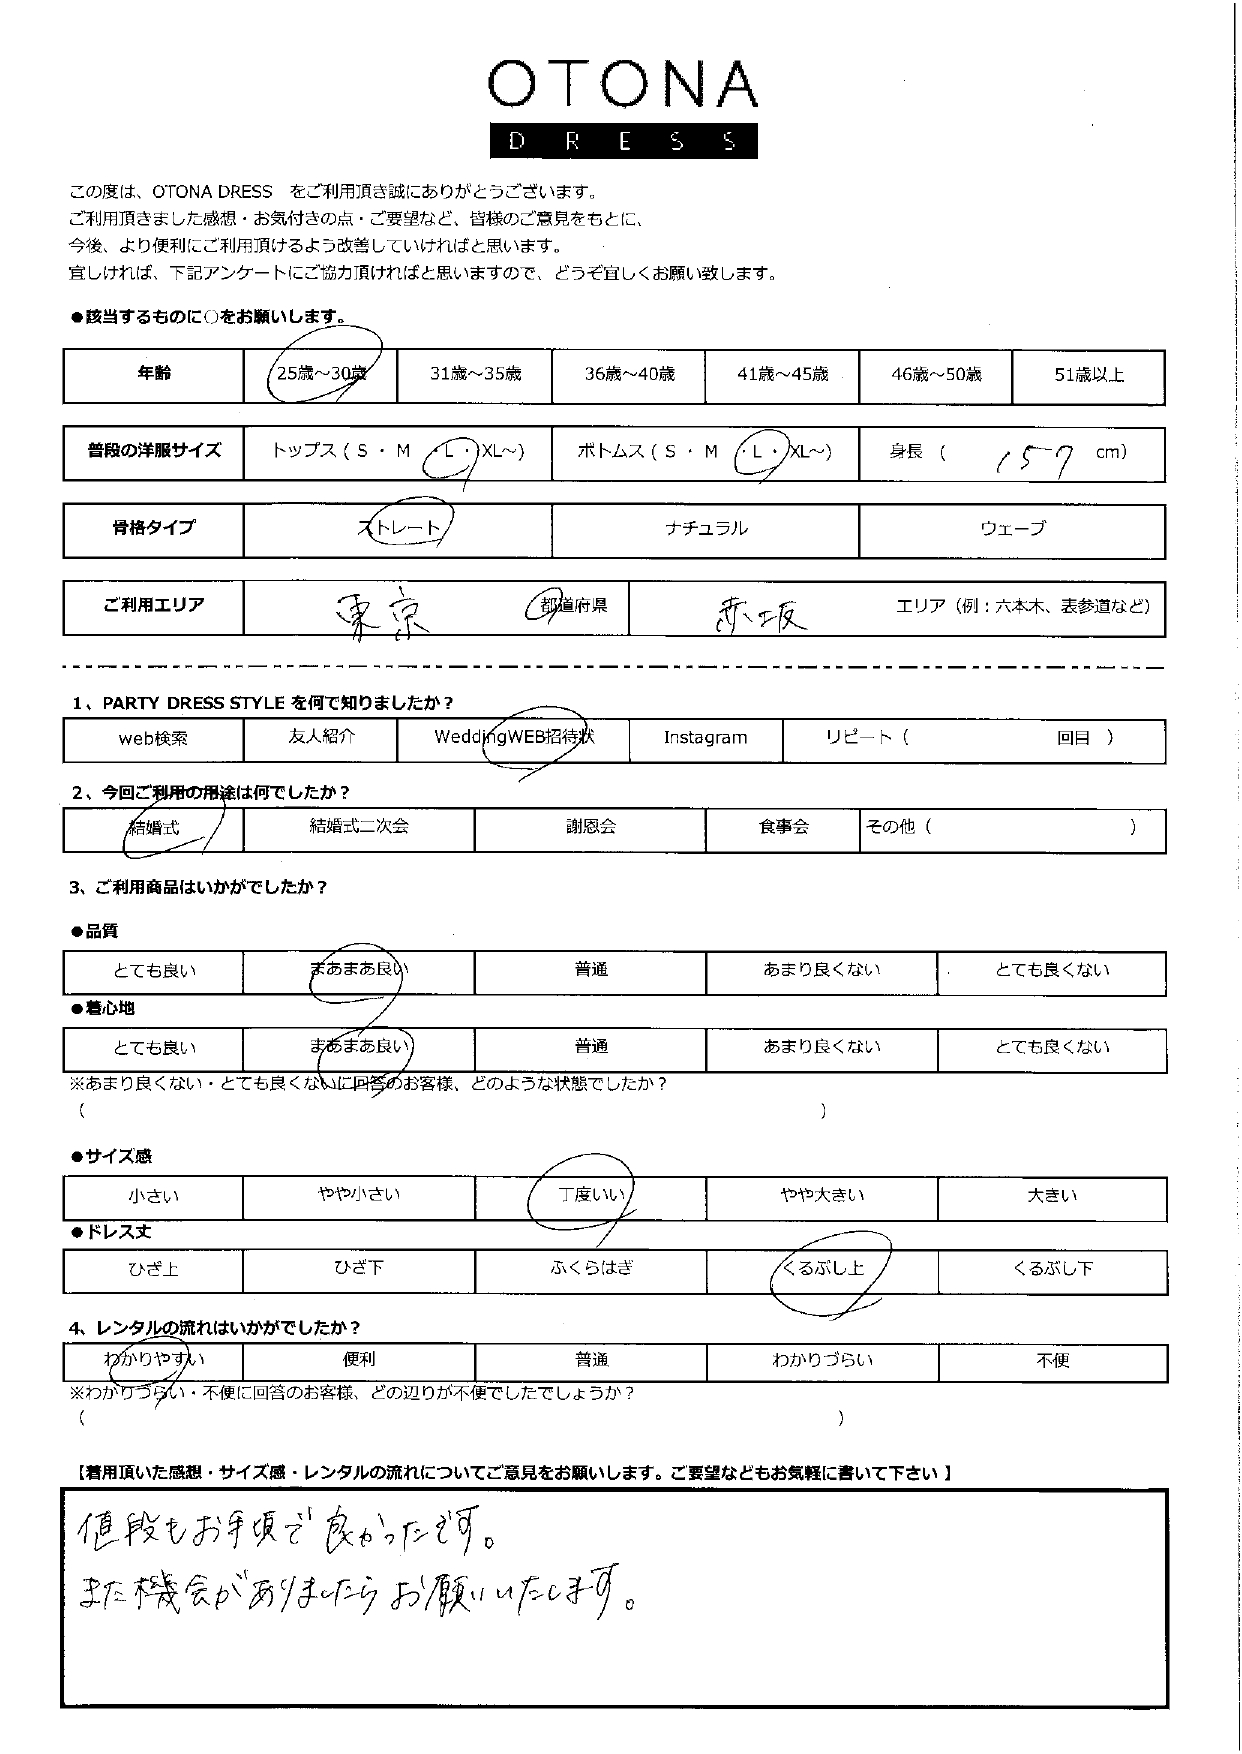 OTONA
DRESS
この度は、OTONA DRESS　をご利用頂き誠にありがとうございます。
ご利用頂きました感想・お気付きの点・ご要望など、皆様のご意見をもとに、
今後、より便利にご利用頂けるよう改善していければと思います。
宜しければ、下記アンケートにご協力頂ければと思いますので、どうぞ宜しくお願い致します。
●該当するものに○をお願いします。
年齢 25歳～30歳 31歳～35歳 36歳～40歳 41歳～45歳 46歳～50歳 51歳以上
普段の洋服サイズ トップス ( S ・ M ・L ・ XL～) ボトムス ( S ・ M ・L ・ XL～) 身長 ( 157 cm)
骨格タイプ ストレート ナチュラル ウェーブ
ご利用エリア 東京 都道府県 赤坂 エリア（例：六本木、表参道など）
1、PARTY DRESS STYLE を何で知りましたか？
web検索 友人紹介 WeddingWEB招待状 Instagram リピート（ 回目 ）
2、今回ご利用の用途は何でしたか？
結婚式 結婚式二次会 謝恩会 食事会 その他（ ）
3、ご利用商品はいかがでしたか？
●品質
とても良い まあまあ良い 普通 あまり良くない とても良くない
●着心地
とても良い まあまあ良い 普通 あまり良くない とても良くない
※あまり良くない・とても良くないに回答のお客様、どのような状態でしたか？
（ ）
●サイズ感
小さい やや小さい 丁度いい やや大きい 大きい
●ドレス丈
ひざ上 ひざ下 ふくらはぎ くるぶし上 くるぶし下
4、レンタルの流れはいかがでしたか？
わかりやすい 便利 普通 わかりづらい 不便
※わかりづらい・不便に回答のお客様、どの辺りが不便でしたでしょうか？
（ ）
【着用頂いた感想・サイズ感・レンタルの流れについてご意見をお願いします。ご要望などもお気軽に書いて下さい】
値段もお手頃で良かったです。
また機会がありましたらお願いいたします。